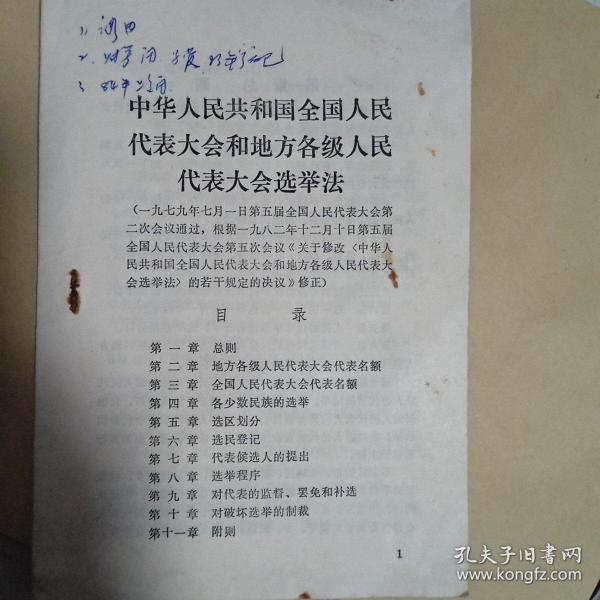 中华人民共和国全国人民
代表大会和地方各级人民
代表大会选举法
(一九七九年七月一日第五届全国人民代表大会第
二次会议通过,根据一九八二年十二月十日第五届
全国人民代表大会第五次会议《关于修改〈中华人
民共和国全国人民代表大会和地方各级人民代表大
会选举法〉的若干规定的决议》修正)
目 录
第一章 总则
第二章 地方各级人民代表大会代表名额
第三章 全国人民代表大会代表名额
第四章 各少数民族的选举
第五章 选区划分
第六章 选民登记
第七章 代表候选人的提出
第八章 选举程序
第九章 对代表的监督、罢免和补选
第十章 对破坏选举的制裁
第十一章 附则
1
孔夫子旧书网
www.kongfz.com